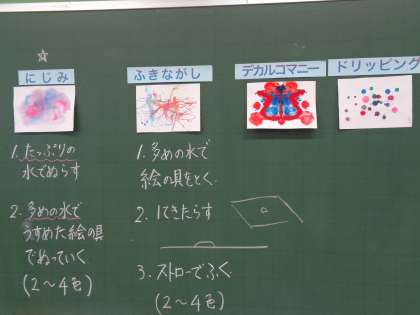 にじみ
ふきながし
デカルコマニー
ドリッピング
1. たっぷりの
水でぬらす
2. 多めの水で
うすめた絵の具
でぬっていく
(2〜4色)
1. 多めの水で
絵の具をとく
2. 1てきたらす
3. ストローでふく
(2〜4色)